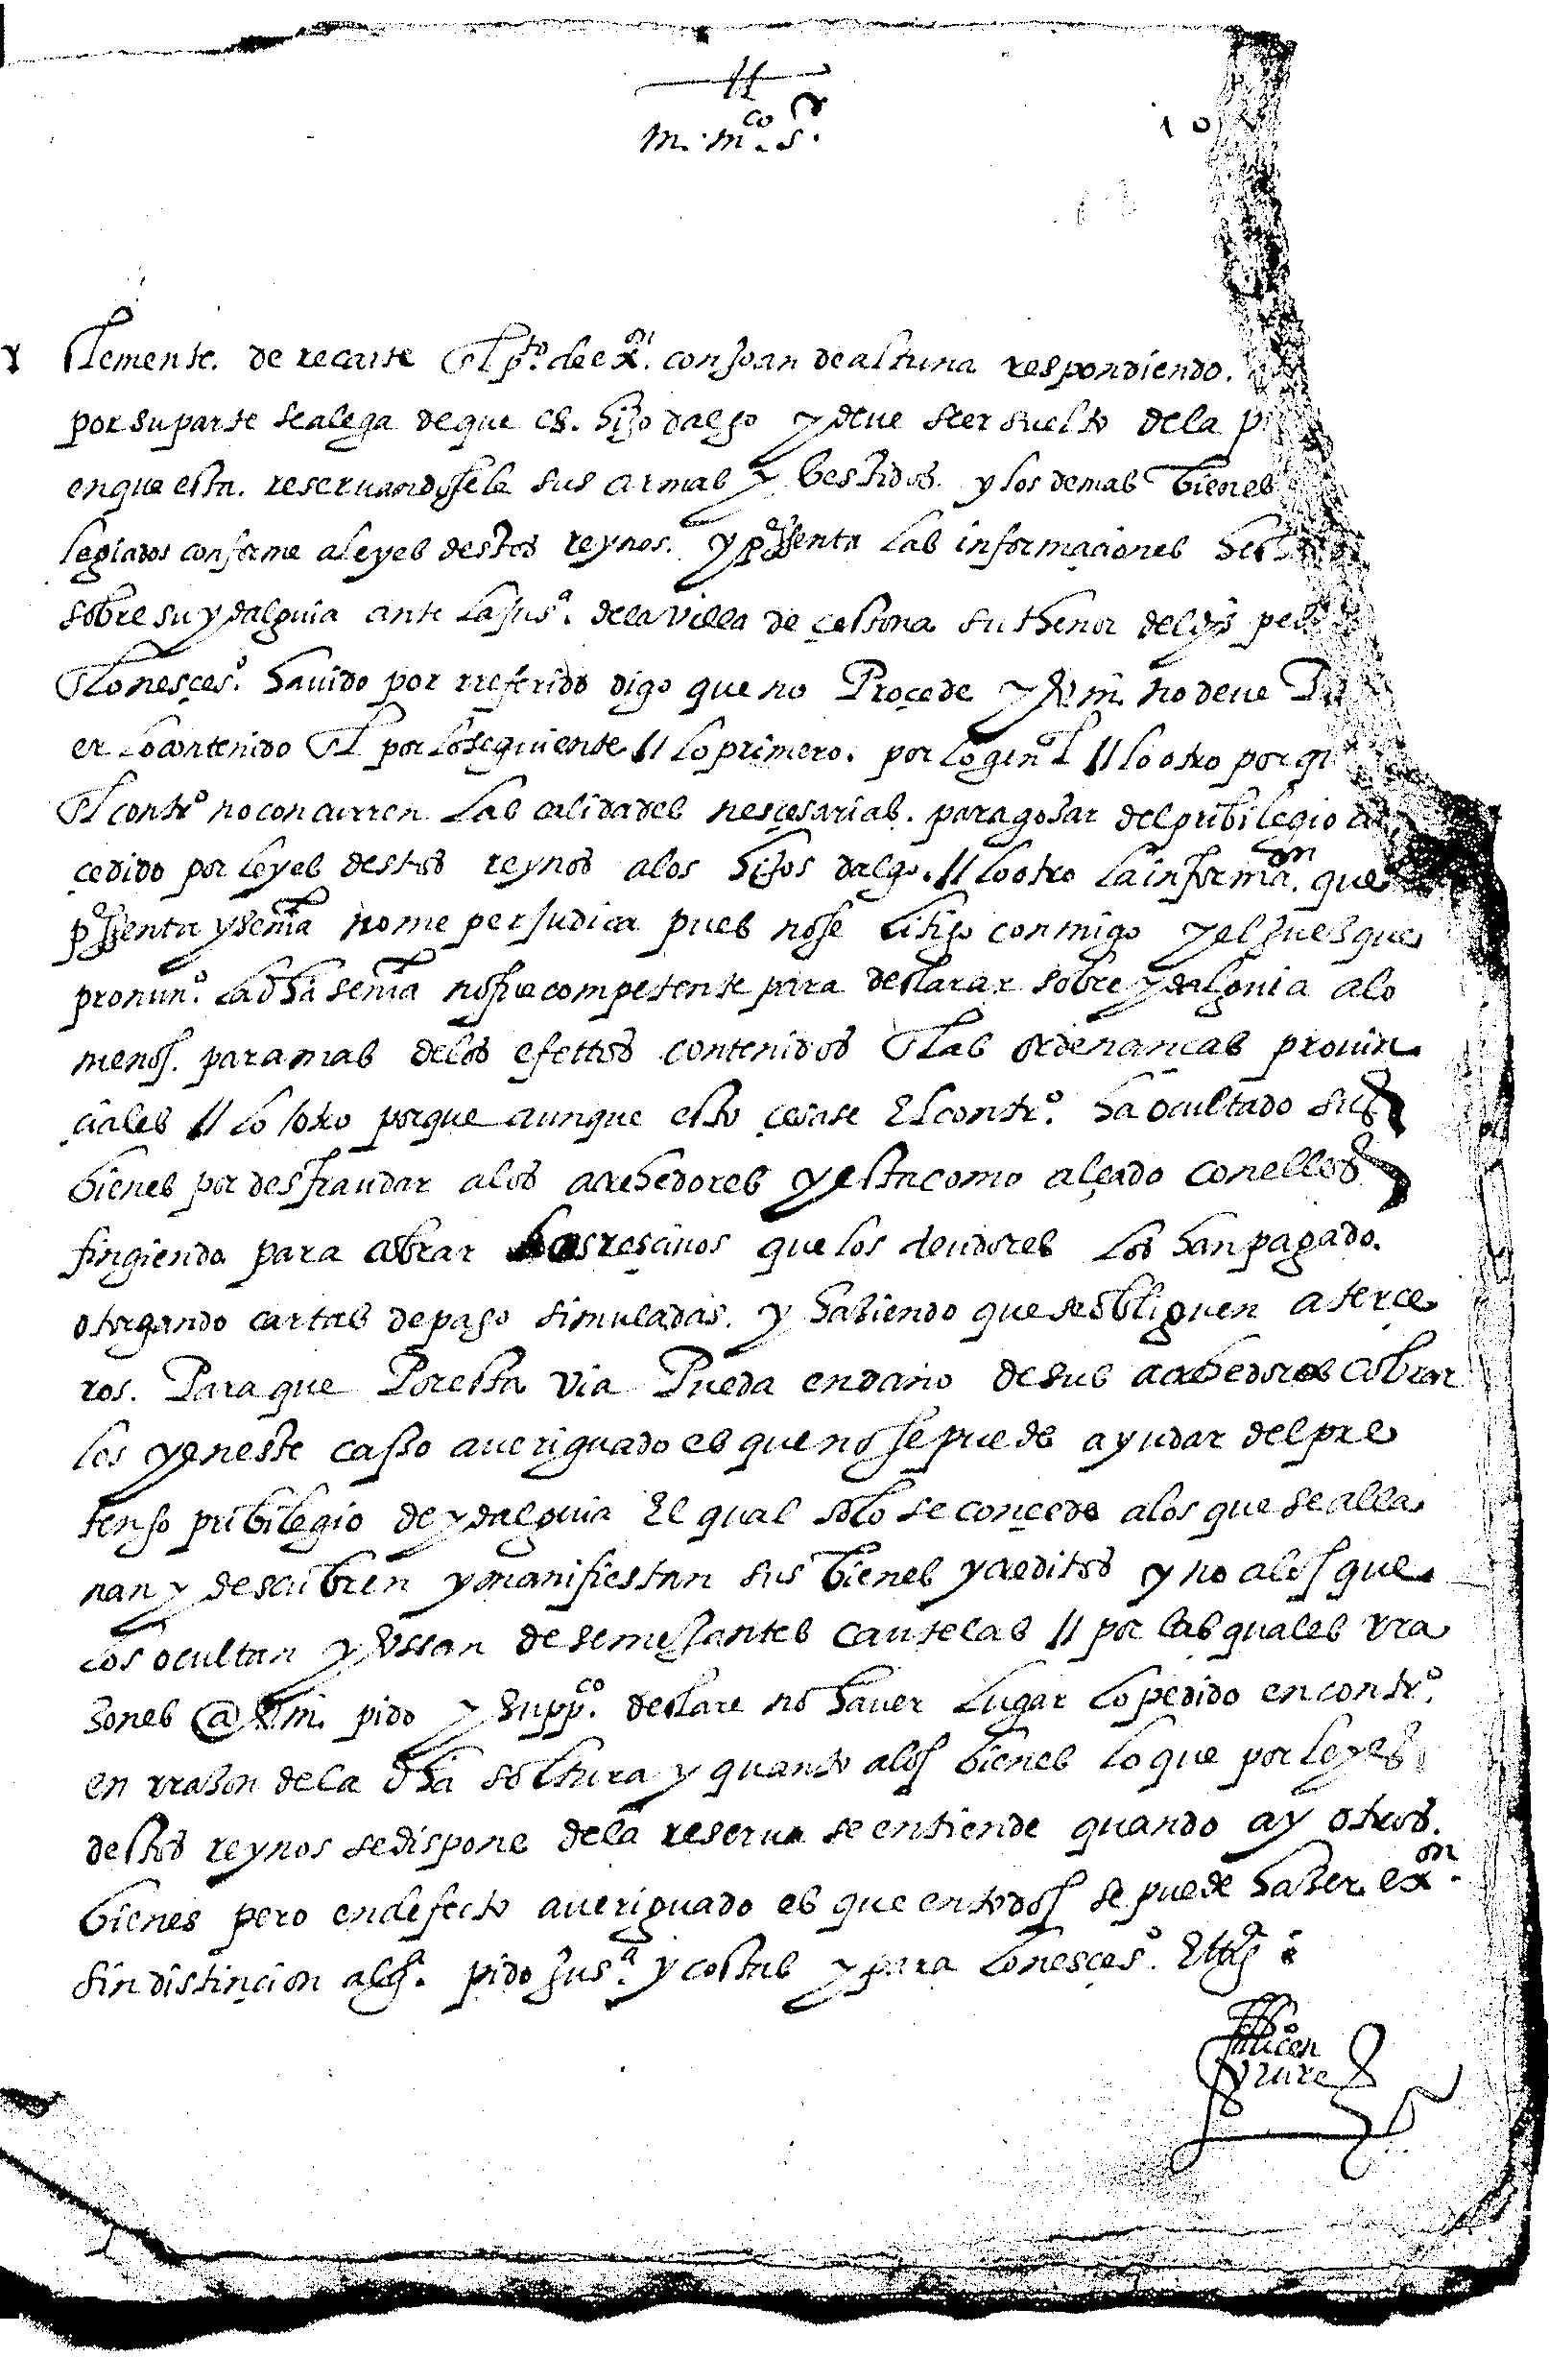 m. mco. sr
10
Clemente. de recarte En pto. de exon. con Joan de altuna respondiendo.
por su parte se alega de que es. hijo dalgo y deve ser suelto de la
en que esta. reservandosele sus armas y bestidos. y los demas bienes
legiados conforme a leyes destos reynos. y pressenta las informaciones
sobre su ydalguia ante la jusa. de la villa de çestona su thenor del
En lo nesçeso. havido por rreferido digo que no Proçede y v m. no deve
er lo contenido En el por lo seguiente // lo primero. por lo genl // lo otro
El contro no concurren las calidades nesçesarias. para gosar del pribilegio
çedido por leyes destos reynos a los hijos dalgo. // lo otro la informaon. que
pressenta y senta no me perjudica pues no se litigo conmigo y el jues que
pronuno. la dha senta no fue competente para declarar sobre ydalguia a lo
menos. para mas de los efettos contenidos En las ordenanças provin
çiales // lo otro porque aunque esto çesase El contro. ha ocultado sus
bienes por desfraudar a los acrehedores y esta como alçado con ellos
fingiendo para cobrar los resçivos que los deudores los han pagado.
otorgando cartas de pago simuladas. y hasiendo que se obliguen a terçe
ros. Para que Por esta via Pueda en daño de sus acrehedores cobrar
los y en este casso averiguado es que no se puede ayudar del pre
tenso pribilegio de ydalguia El qual solo se conçede a los que se alla
nan y descubren y manifiestan sus bienes y creditos y no a los que
los ocultan y vssan de semejantes cautelas // por las quales rra
zones @ v m. pido y suppco. declare no haver lugar lo pedido en contro.
en rrason de la dha soltura y quanto a los bienes lo que por leyes
destos reynos se dispone de la reserva se entiende quando ay otros.
bienes pero en defecto averiguado es que en todos se puede hazer exon.
sin distinçion alga. pido jusa. y costas y para lo nesçeso. Etta